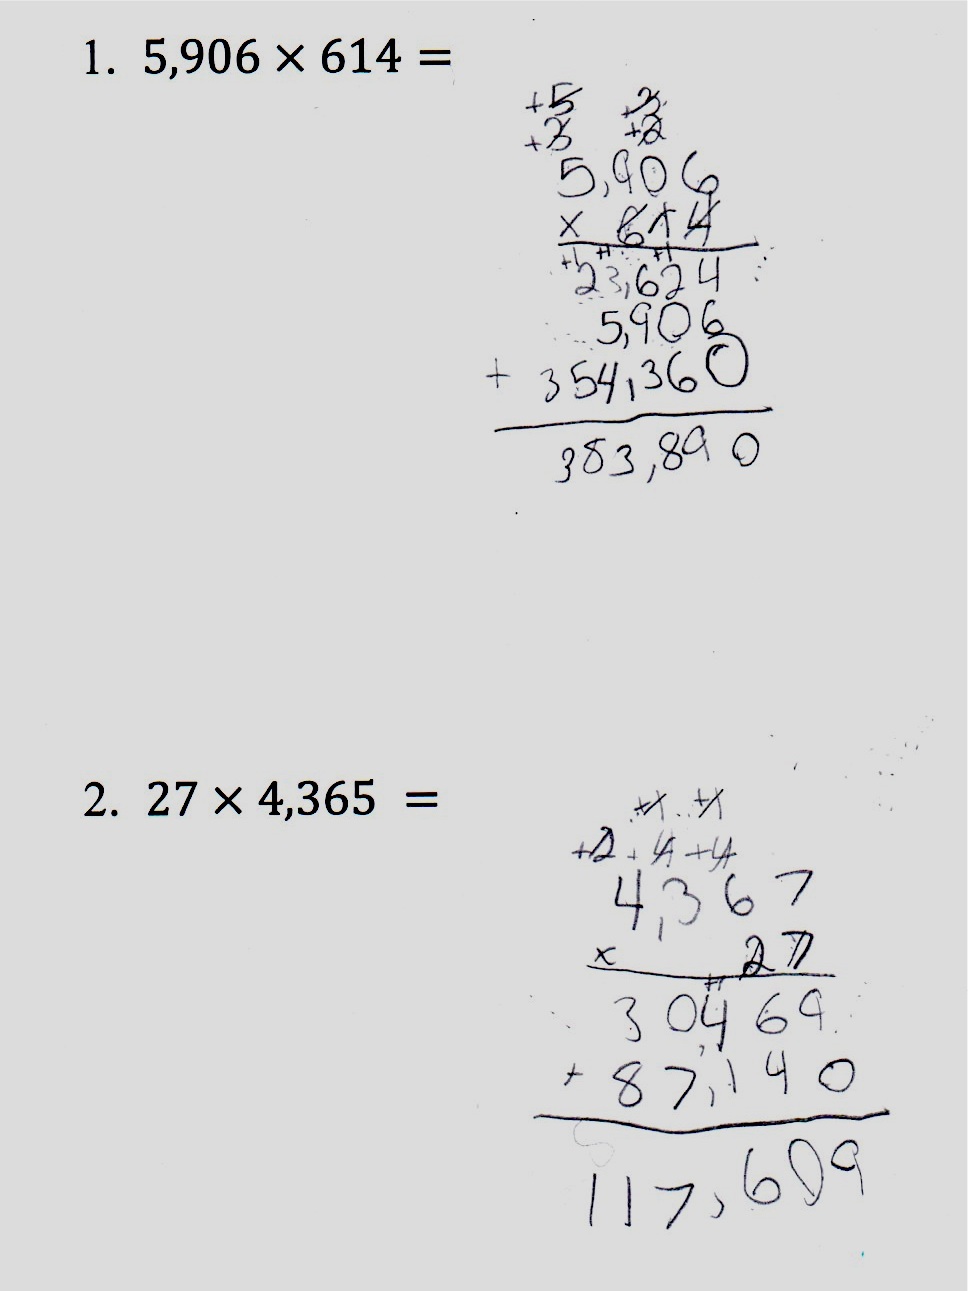 1. 5,906 × 614 =
+5 +3
+3 +2
5,906
× 614
+1 +1 +1
23,624
5,906
+ 354,360
383,890
2. 27 × 4,365 =
+1 +1
+2 +4 +4
4,367
× 27
+1
30,469
+ 87,140
117,609